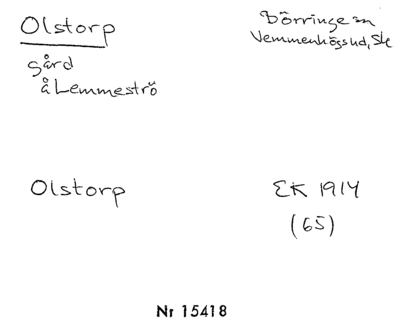 Olstorp
Börringe sn
Vemmenhögs hd, Sk
gård
å Lemmeströ
Olstorp
EK 1914
(65)
Nr 15418